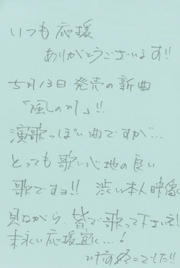 いつも応援
ありがとうございます!!
5月13日発売の新曲
「風の川」!!
演歌っぽい曲ですが…
とっても歌い心地の良い
歌ですョ!! 渋い本人映像
見ながら、皆で歌って下さいネ!
末永い応援宜しく…!
でした!!